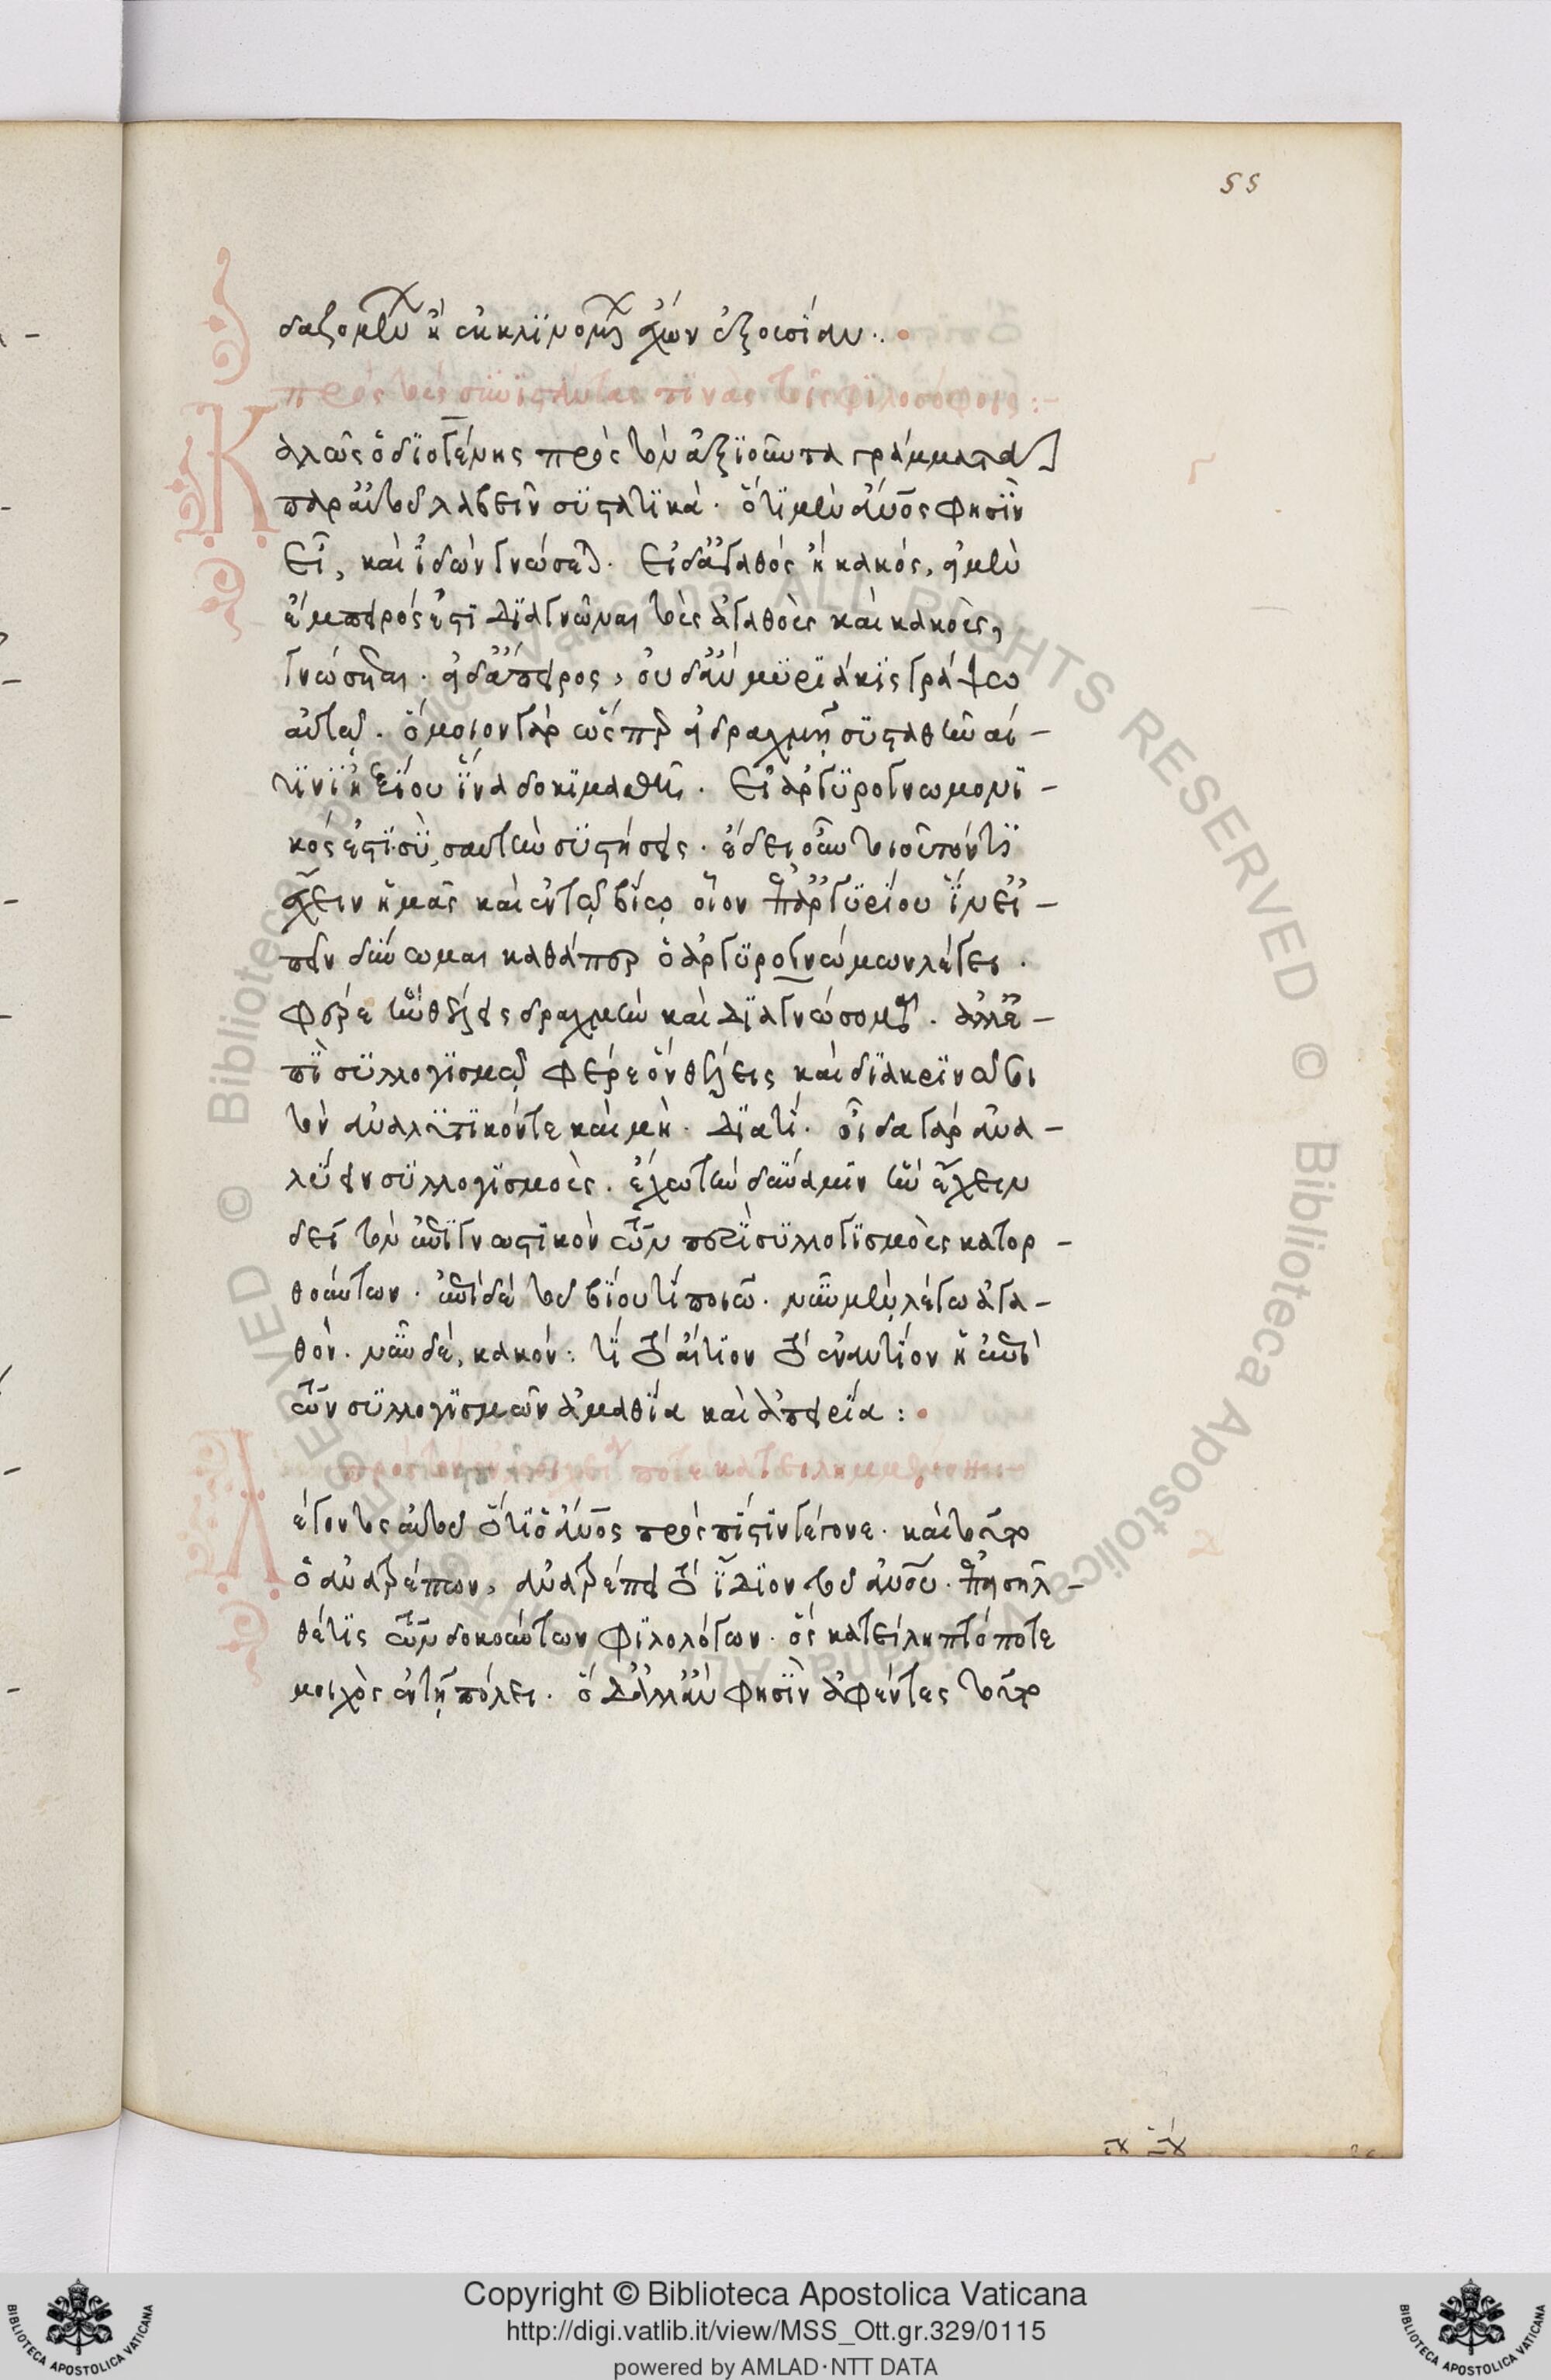 55
δαζομένων ἢ ἐκκλινομένων ἔχων ἐξουσίαν.
πρὸς τοὺς συνιστάντας τινὰς τοῖς φιλοσόφοις:
Καλῶς ὁ διογένης πρὸς τὸν ἀξιοῦντα γράμματα
παρ' αὐτοῦ λαβεῖν συστατικά. ὅτι μὲν ἄνος φησὶν
εἶ, καὶ ἰδὼν γνώσεται. εἰ δ' ἀγαθὸς ἢ κακός, εἰ μὲν
ἔμπειρός ἐστι διαγνῶναι τοὺς ἀγαθοὺς καὶ κακοὺς,
γνώσεται. εἰ δ' ἄπειρος, οὐδ' ἂν μυριάκις γράψω
αὐτῷ. ὅμοιον γὰρ ὥσπερ εἰ δραχμὴ συσταθῆναι
τινὶ ἠξίου ἵνα δοκιμασθῇ. εἰ ἀργυρογνωμονι-
κός ἐστι σὺ σαυτὴν συστήσεις. ἔδει οὖν τοιοῦτόν τι
ἔχειν ἡμᾶς καὶ ἐν τῷ βίῳ οἷον ἐπ' ἀργυρίου ἵν' εἰ-
πεῖν δύνωμαι καθάπερ ὁ ἀργυρογνώμων λέγει.
φέρε ἣν θέλεις δραχμὴν καὶ διαγνώσομαι. ἀλλ' ἐ-
πὶ συλλογισμῷ φέρε ὃν θέλεις καὶ διακρινῶ σοι
τὸν ἀναλυτικόν τε καὶ μή. διατί. οἶδα γὰρ ἀνα-
λύειν συλλογισμοὺς. ἔχω τὴν δύναμιν ἣν ἔχειν
δεῖ τὸν ἐπιγνωστικὸν τῶν περὶ συλλογισμοὺς κατορ-
θούντων. ἐπὶ δὲ τοῦ βίου τί ποιῶ. νῦν μὲν λέγω ἀγα-
θόν. νῦν δὲ, κακόν: τί τὸ αἴτιον τὸ ἐναντίον ἢ ἐπὶ
τῶν συλλογισμῶν ἀμαθία καὶ ἀπειρία:
λέγοντος αὐτοῦ ὅτι ὁ ἄνος πρὸς πίστιν γέγονε. καὶ τοῦτο
ὁ ἀνατρέπων, ἀνατρέπει τὸ ἴδιον τοῦ ἀνου. ἐπεισῆλ-
θέ τις τῶν δοκούντων φιλολόγων. ὃς κατείληπτό ποτε
μοιχὸς ἐν τῇ πόλει. ὁ δ' ἀλλ' ἂν φησὶν ἀφέντες τοῦτο
Copyright © Biblioteca Apostolica Vaticana
http://digi.vatlib.it/view/MSS_Ott.gr.329/0115
powered by AMLAD·NTT DATA